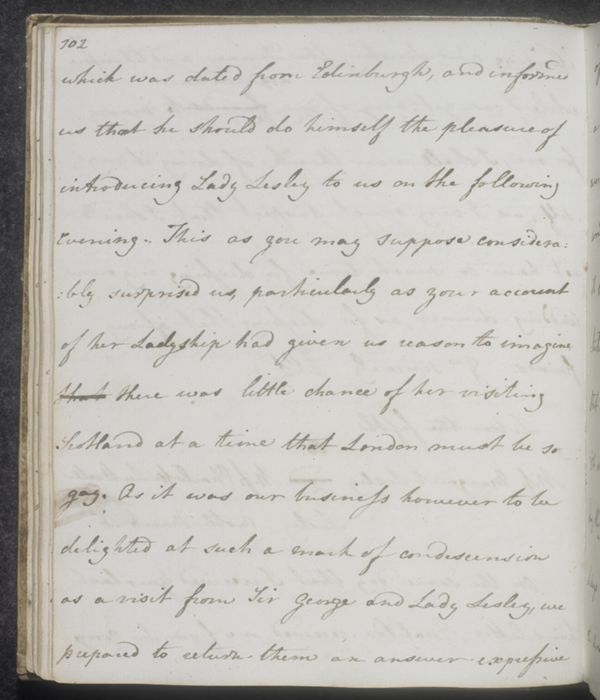 102
which was dated from Edinburgh, and informed
us that he should do himself the pleasure of
introducing Lady Lesley to us on the following
Evening. This as you may suppose considera:
:bly surprised us, particularly as your account
of her Ladyship had given us reason to imagine
that there was little chance of her visiting
Scotland at a time that London must be so
gay. As it was our business however to be
delighted at such a mark of condescension
as a visit from Sir George and Lady Lesley, we
prepared to return them an answer expressive